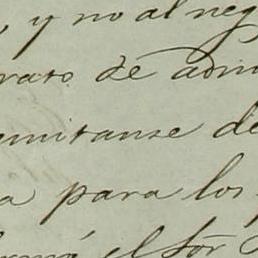 , y no al neg
rato de adm
emitanse de
a para los
el Sor